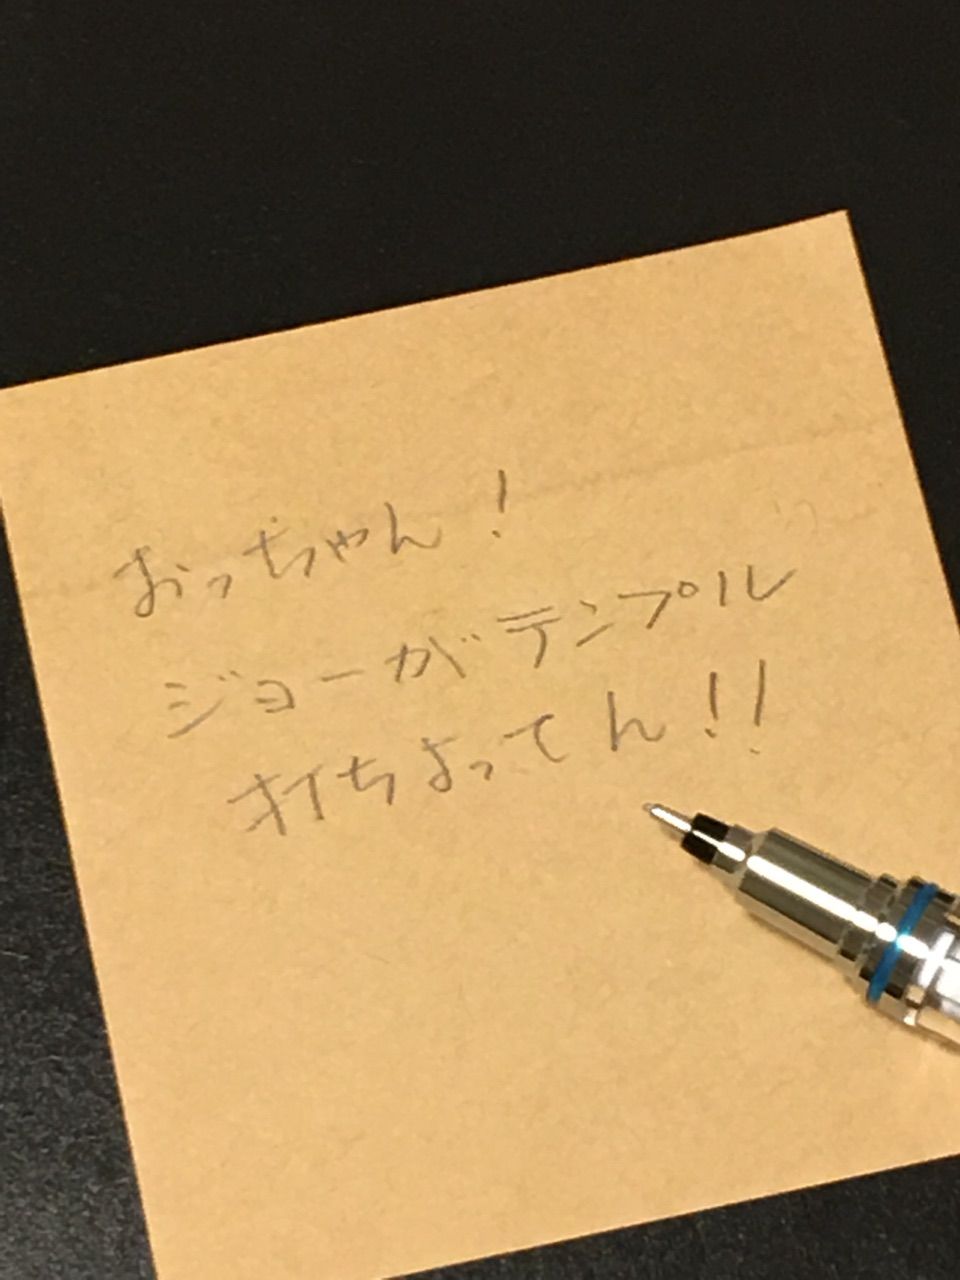 おっちゃん!
ジョーがテンプル
打ちよってん!!